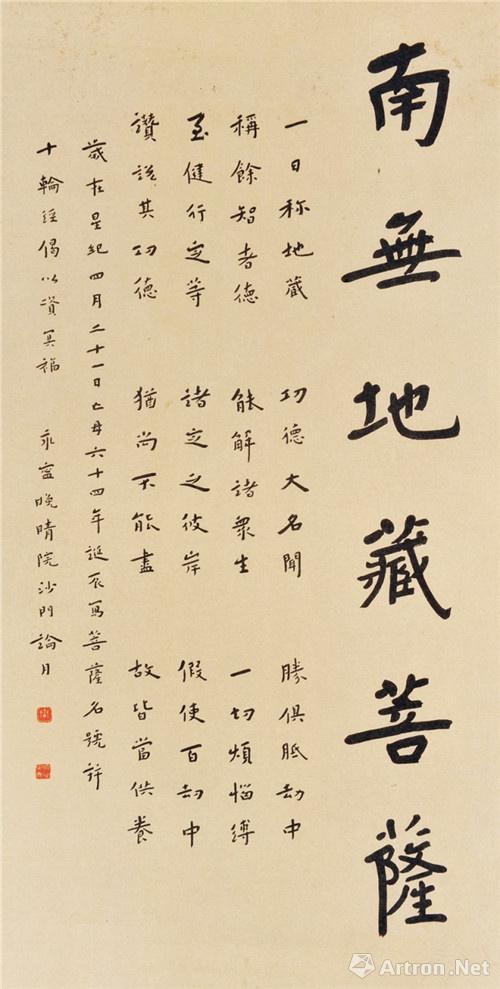 南無地藏菩薩
一日称地藏 功德大名聞 勝俱胝劫中
稱餘智者德 能解諸眾生 一切煩惱縛
至健行定等 諸定之彼岸 假使百劫中
讚說其功德 猶尚不能盡 故皆當供養
歲在星紀四月二十一日亡母六十四年誕辰寫菩薩名號并
十輪經偈以資冥福 永寧晚晴院沙門論月
Artron.Net